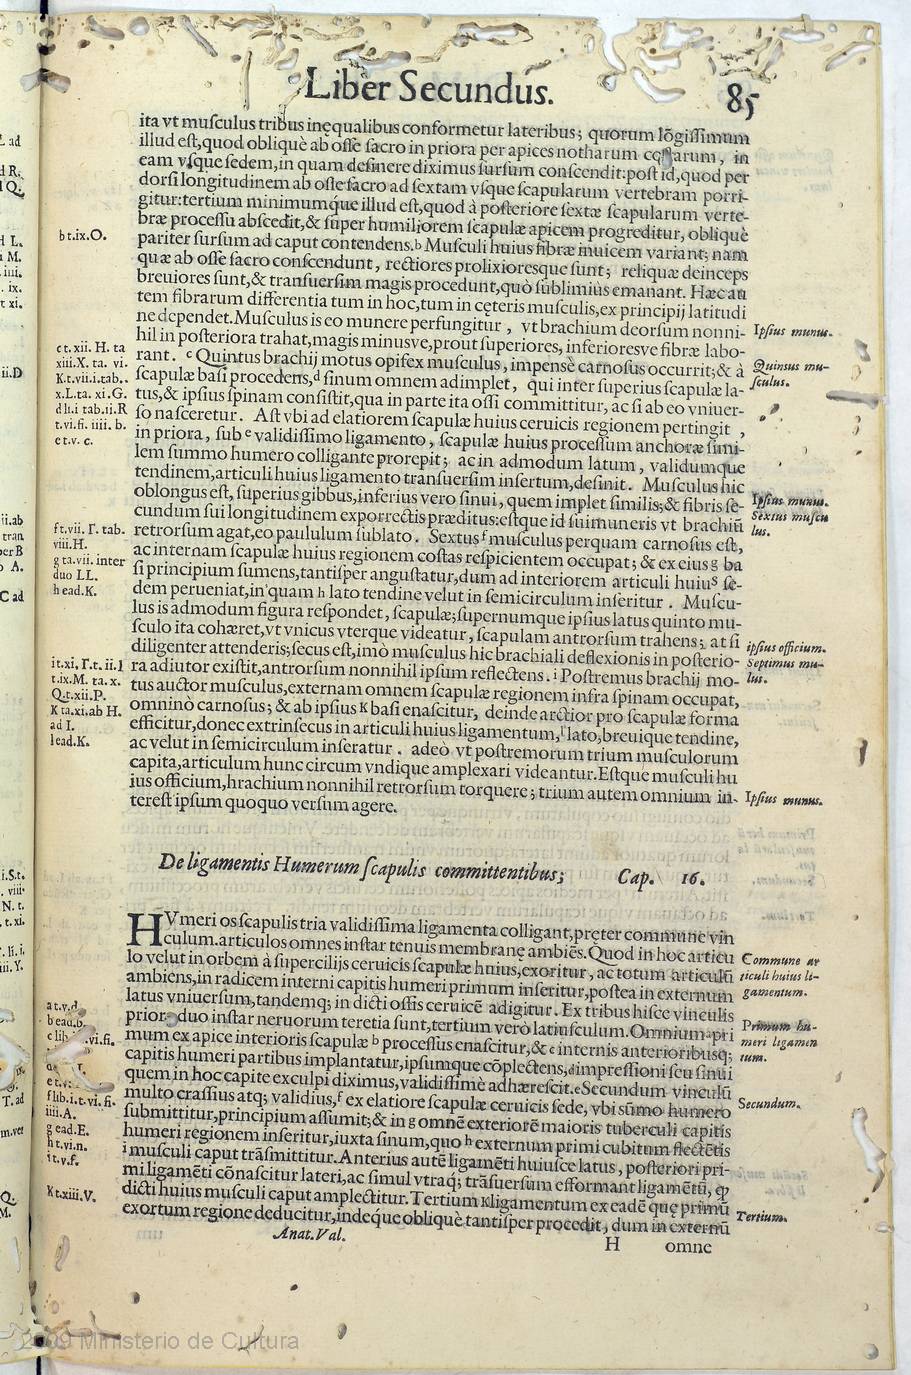 Liber Secundus. 85
ita vt musculus tribus inęqualibus conformetur lateribus; quorum lõgissimum
illud est, quod obliquè ab osse sacro in priora per apices notharum costarum, in
eam vsque sedem, in quam desinere diximus sursum conscendit: post id, quod per
dorsi longitudinem ab osse sacro ad sextam vsque scapularum vertebram porri-
gitur: tertium minimumque illud est, quod à posteriore sextæ scapularum verte-
bræ processu abscedit, & super humiliorem scapulæ apicem progreditur, obliquè
pariter sursum ad caput contendens. b Musculi huius fibræ inuicem variant; nam
quæ ab osse sacro conscendunt, rectiores prolixioresque sunt; reliquæ deinceps
breuiores sunt, & transuersim magis procedunt, quò sublimiùs emanant. Hæc au
tem fibrarum differentia tum in hoc, tum in cęteris musculis, ex principij latitudi
ne dependet. Musculus is eo munere perfungitur, vt brachium deorsum nonni-
hil in posteriora trahat, magis minusve, prout superiores, inferioresve fibræ labo-
rant. c Quintus brachij motus opifex musculus, impensè carnosus occurrit; & à
scapulæ basi procedens, d sinum omnem adimplet, qui inter superius scapulæ la-
tus, & ipsius spinam consistit, qua in parte ita ossi committitur, ac si ab eo vniuer-
so nasceretur. Ast vbi ad elatiorem scapulæ huius ceruicis regionem pertingit,
in priora, sub e validissimo ligamento, scapulæ huius processum anchoræ simi-
lem summo humero colligante prorepit; ac in admodum latum, validumque
tendinem, articuli huius ligamento transuersim insertum, desinit. Musculus hic
oblongus est, superius gibbus, inferius vero sinui, quem implet similis; & fibris se-
cundum sui longitudinem exporrectis præditus: estque id sui muneris vt brachiũ
retrorsum agat, eo paululum sublato. Sextus f musculus perquam carnosus est,
ac internam scapulæ huius regionem costas respicientem occupat; & ex eius g ba
si principium sumens, tantisper angustatur, dum ad interiorem articuli huius se-
dem perueniat, in quam h lato tendine velut in semicirculum inseritur. Muscu-
lus is admodum figura respondet, scapulæ; supernumque ipsius latus quinto mu-
sculo ita cohæret, vt vnicus vterque videatur, scapulam antrorsum trahens; at si
diligenter attenderis; secus est, imò musculus hic brachiali deflexionis in posterio-
ra adiutor existit, antrorsum nonnihil ipsum reflectens. i Postremus brachij mo-
tus auctor musculus, externam omnem scapulæ regionem infra spinam occupat,
omninò carnosus; & ab ipsius k basi enascitur, deinde arctior pro scapulæ forma
efficitur, donec extrinsecus in articuli huius ligamentum, l lato, breuique tendine,
ac velut in semicirculum inseratur. adeò vt postremorum trium musculorum
capita, articulum hunc circum vndique amplexari videantur. Estque musculi hu
ius officium, brachium nonnihil retrorsum torquere; trium autem omnium in-
terest ipsum quoquo versum agere.
De ligamentis Humerum scapulis committentibus; Cap. 16.
HVmeri os scapulis tria validissima ligamenta colligant, pręter commune vin
culum. articulos omnes instar tenuis membranę ambiẽs. Quod in hoc articu
lo velut in orbem à supercilijs ceruicis scapulæ huius, exoritur, ac totum articulũ
ambiens, in radicem interni capitis humeri primum inseritur, postea in externum
latus vniuersum, tandemq; in dicti ossis ceruicẽ adigitur. Ex tribus hisce vinculis
priora duo instar neruorum teretia sunt, tertium verò latiusculum. Omnium pri
mum ex apice interioris scapulæ b processus enascitur, & c internis anterioribusq;
capitis humeri partibus implantatur, ipsumque cõplectens, d impressioni seu sinui
quem in hoc capite exculpi diximus, validissimè adhærescit. e Secundum vinculũ
multo crassius atq; validius, f ex elatiore scapulæ ceruicis sede, vbi sũmo humero
submittitur, principium assumit; & in g omnẽ exteriorẽ maioris tuberculi capitis
humeri regionem inseritur, iuxta sinum, quo h externum primi cubitum flectẽtis
i musculi caput trãsmittitur. Anterius autẽ ligamẽti huiusce latus, posteriori pri-
mi ligamẽti cõnascitur lateri, ac simul vtraq; trãsuersum efformant ligamẽtũ, ꝙ
dicti huius musculi caput amplectitur. Tertium k ligamentum ex eadẽ quę primũ
exortum regione deducitur, indeq́ue obliquè tantisper procedit, dum in externũ
Anat. Val. H omne
b t.ix.O.
c t. xii. H. ta
xiii.X. ta. vi.
K.t.vii.i.tab..
x.L.ta. xi.G.
d li.i tab.ii.R
t.vi.fi. iiii. b.
e t.v. c.
f t.vii. Γ. tab.
viii.H.
g ta.vii. inter
duo LL.
h ead.K.
i t.xi. Γ.t. ii.l
t.ix.M. ta.x.
Q.t.xii.P.
K ta.xi.ab H.
ad I.
l ead.K.
a t.v.d.
b ead.b.
f lib.i.t.vi.fi.
iiii.A.
g ead.E.
h t.vi.n.
i t.v.f.
K t.xiii.V.
Ipsius munus.
Quinsus mu-
sculus.
Ipsius munus.
Sextus muscu
lus.
ipsius officium.
Septimus mu-
lus.
Ipsius munus.
Commune ar
ticuli huius li-
gamentum.
Primum hu-
meri ligamen
tum.
Secundum.
Tertium.
2009 Ministerio de Cultura